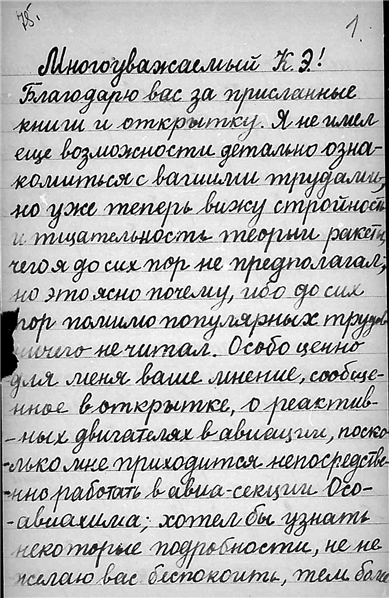 78. 1.
Многоуважаемый К.Э.!
Благодарю вас за присланные
книги и открытку. Я не имел
еще возможности детально озна-
комиться с вашими трудами,
но уже теперь вижу стройность
и тщательность теории ракеты,
чего я до сих пор не предполагал,
но это ясно почему, ибо до сих
пор помимо популярных трудов
ничего не читал. Особо ценно
для меня ваше мнение, сообще-
нное в открытке, о реактив-
-ных двигателях в авиации, поско-
-лько мне приходится непосредстве-
-нно работать в авиа-секции Осо-
-авиахима; хотел бы узнать
некоторые подробности, не не
желаю вас беспокоить, тем более